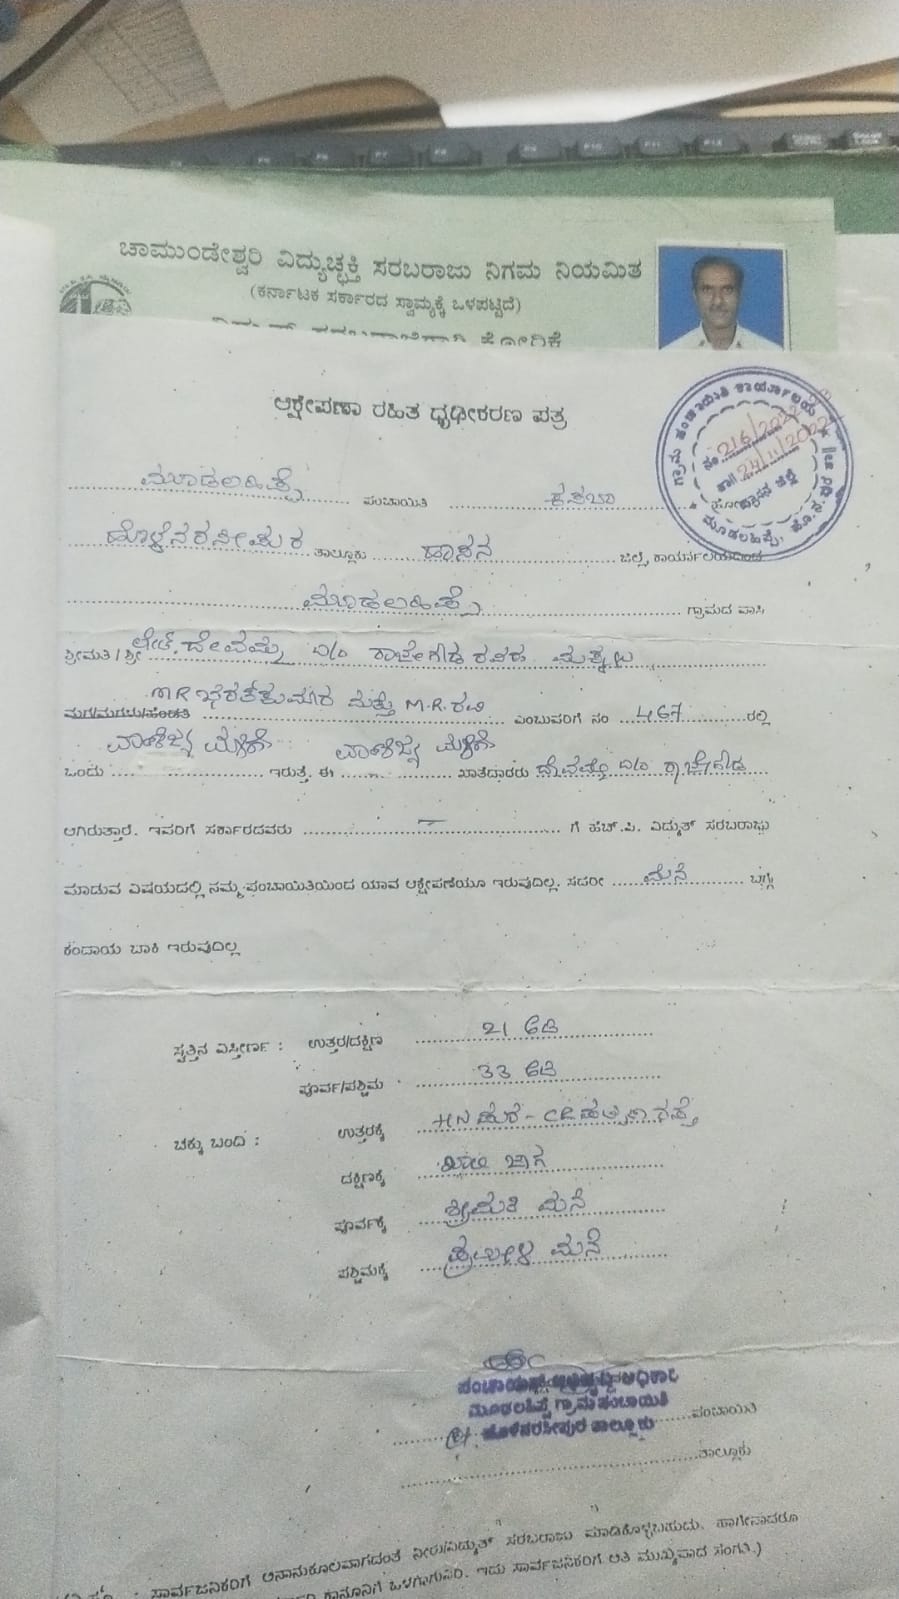 ಚಾಮುಂಡೇಶ್ವರಿ ವಿದ್ಯುಚ್ಛಕ್ತಿ ಸರಬರಾಜು ನಿಗಮ ನಿಯಮಿತ
(ಕರ್ನಾಟಕ ಸರ್ಕಾರದ ಸ್ವಾಮ್ಯಕ್ಕೆ ಒಳಪಟ್ಟಿದೆ)
ಆಕ್ಷೇಪಣಾ ರಹಿತ ಧೃಢೀಕರಣ ಪತ್ರ
ಗ್ರಾಮ ಪಂಚಾಯಿತಿ ಕಾರ್ಯಾಲಯ
ನಂ 216/2022
ತಾ|| 24/11/2022
ಮೂಡಲಹಿಪ್ಪೆ ಪಂಚಾಯಿತಿ ಕಸಬಾ
ಹೊಳೆನರಸೀಪುರ ತಾಲ್ಲೂಕು ಹಾಸನ ಜಿಲ್ಲೆ, ಕಾರ್ಯಾಲಯದಿಂದ
ಮೂಡಲಹಿಪ್ಪೆ ಗ್ರಾಮದ ವಾಸಿ
ಶ್ರೀಮತಿ / ಶ್ರೀ ಲೇಟ್. ದೇವಮ್ಮ ರಾಜೇಗೌಡ ರವರ ಮಕ್ಕಳು
ಮಗ/ಮಗಳು/ಹೆಂಡತಿ M R ಭರತ್‌ಕುಮಾರ ಮತ್ತು M.R. ರವಿ ಎಂಬುವರಿಗೆ ನಂ 467 ರಲ್ಲಿ
ಒಂದು ವಾಣಿಜ್ಯ ಮಳಿಗೆ ಇರುತ್ತೆ, ಈ ವಾಣಿಜ್ಯ ಮಳಿಗೆ ಖಾತೆದಾರರು ದೇವಮ್ಮ ರಾಜೇಗೌಡ
ಆಗಿರುತ್ತಾರೆ. ಇವರಿಗೆ ಸರ್ಕಾರದವರು ಗೆ ಹೆಚ್.ಪಿ. ವಿದ್ಯುತ್ ಸರಬರಾಜು
ಮಾಡುವ ವಿಷಯದಲ್ಲಿ ನಮ್ಮ ಪಂಚಾಯಿತಿಯಿಂದ ಯಾವ ಆಕ್ಷೇಪಣೆಯೂ ಇರುವುದಿಲ್ಲ. ಸದರೀ ಮನೆ ಬಗ್ಗೆ
ಕಂದಾಯ ಬಾಕಿ ಇರುವುದಿಲ್ಲ
ಸ್ವತ್ತಿನ ವಿಸ್ತೀರ್ಣ : ಉತ್ತರ/ದಕ್ಷಿಣ 21 ಅಡಿ
ಪೂರ್ವ/ಪಶ್ಚಿಮ 33 ಅಡಿ
ಚಕ್ಕು ಬಂದಿ : ಉತ್ತರಕ್ಕೆ HN ಪುರ - ರಸ್ತೆ
ದಕ್ಷಿಣಕ್ಕೆ ಖಾಲಿ ಜಾಗ
ಪೂರ್ವಕ್ಕೆ ಶ್ರೀಮತಿ ಮನೆ
ಪಶ್ಚಿಮಕ್ಕೆ ಮನೆ
ಮೂಡಲಹಿಪ್ಪೆ ಗ್ರಾಮ ಪಂಚಾಯಿತಿ
ಪಂಚಾಯಿತಿ
ಹೊಳೆನರಸೀಪುರ ತಾಲ್ಲೂಕು
ತಾಲ್ಲೂಕು
ಸಾರ್ವಜನಿಕರಿಗೆ ಅನಾನುಕೂಲವಾಗದಂತೆ ನೀರು/ವಿದ್ಯುತ್ ಸರಬರಾಜು ಮಾಡಿಕೊಳ್ಳಬಹುದು. ಹಾಗೇನಾದರೂ
ಕಾನೂನಿಗೆ ಒಳಗಾಗುವಿರಿ. ಇದು ಸಾರ್ವಜನಿಕರಿಗೆ ಅತಿ ಮುಖ್ಯವಾದ ಸಂಗತಿ.)